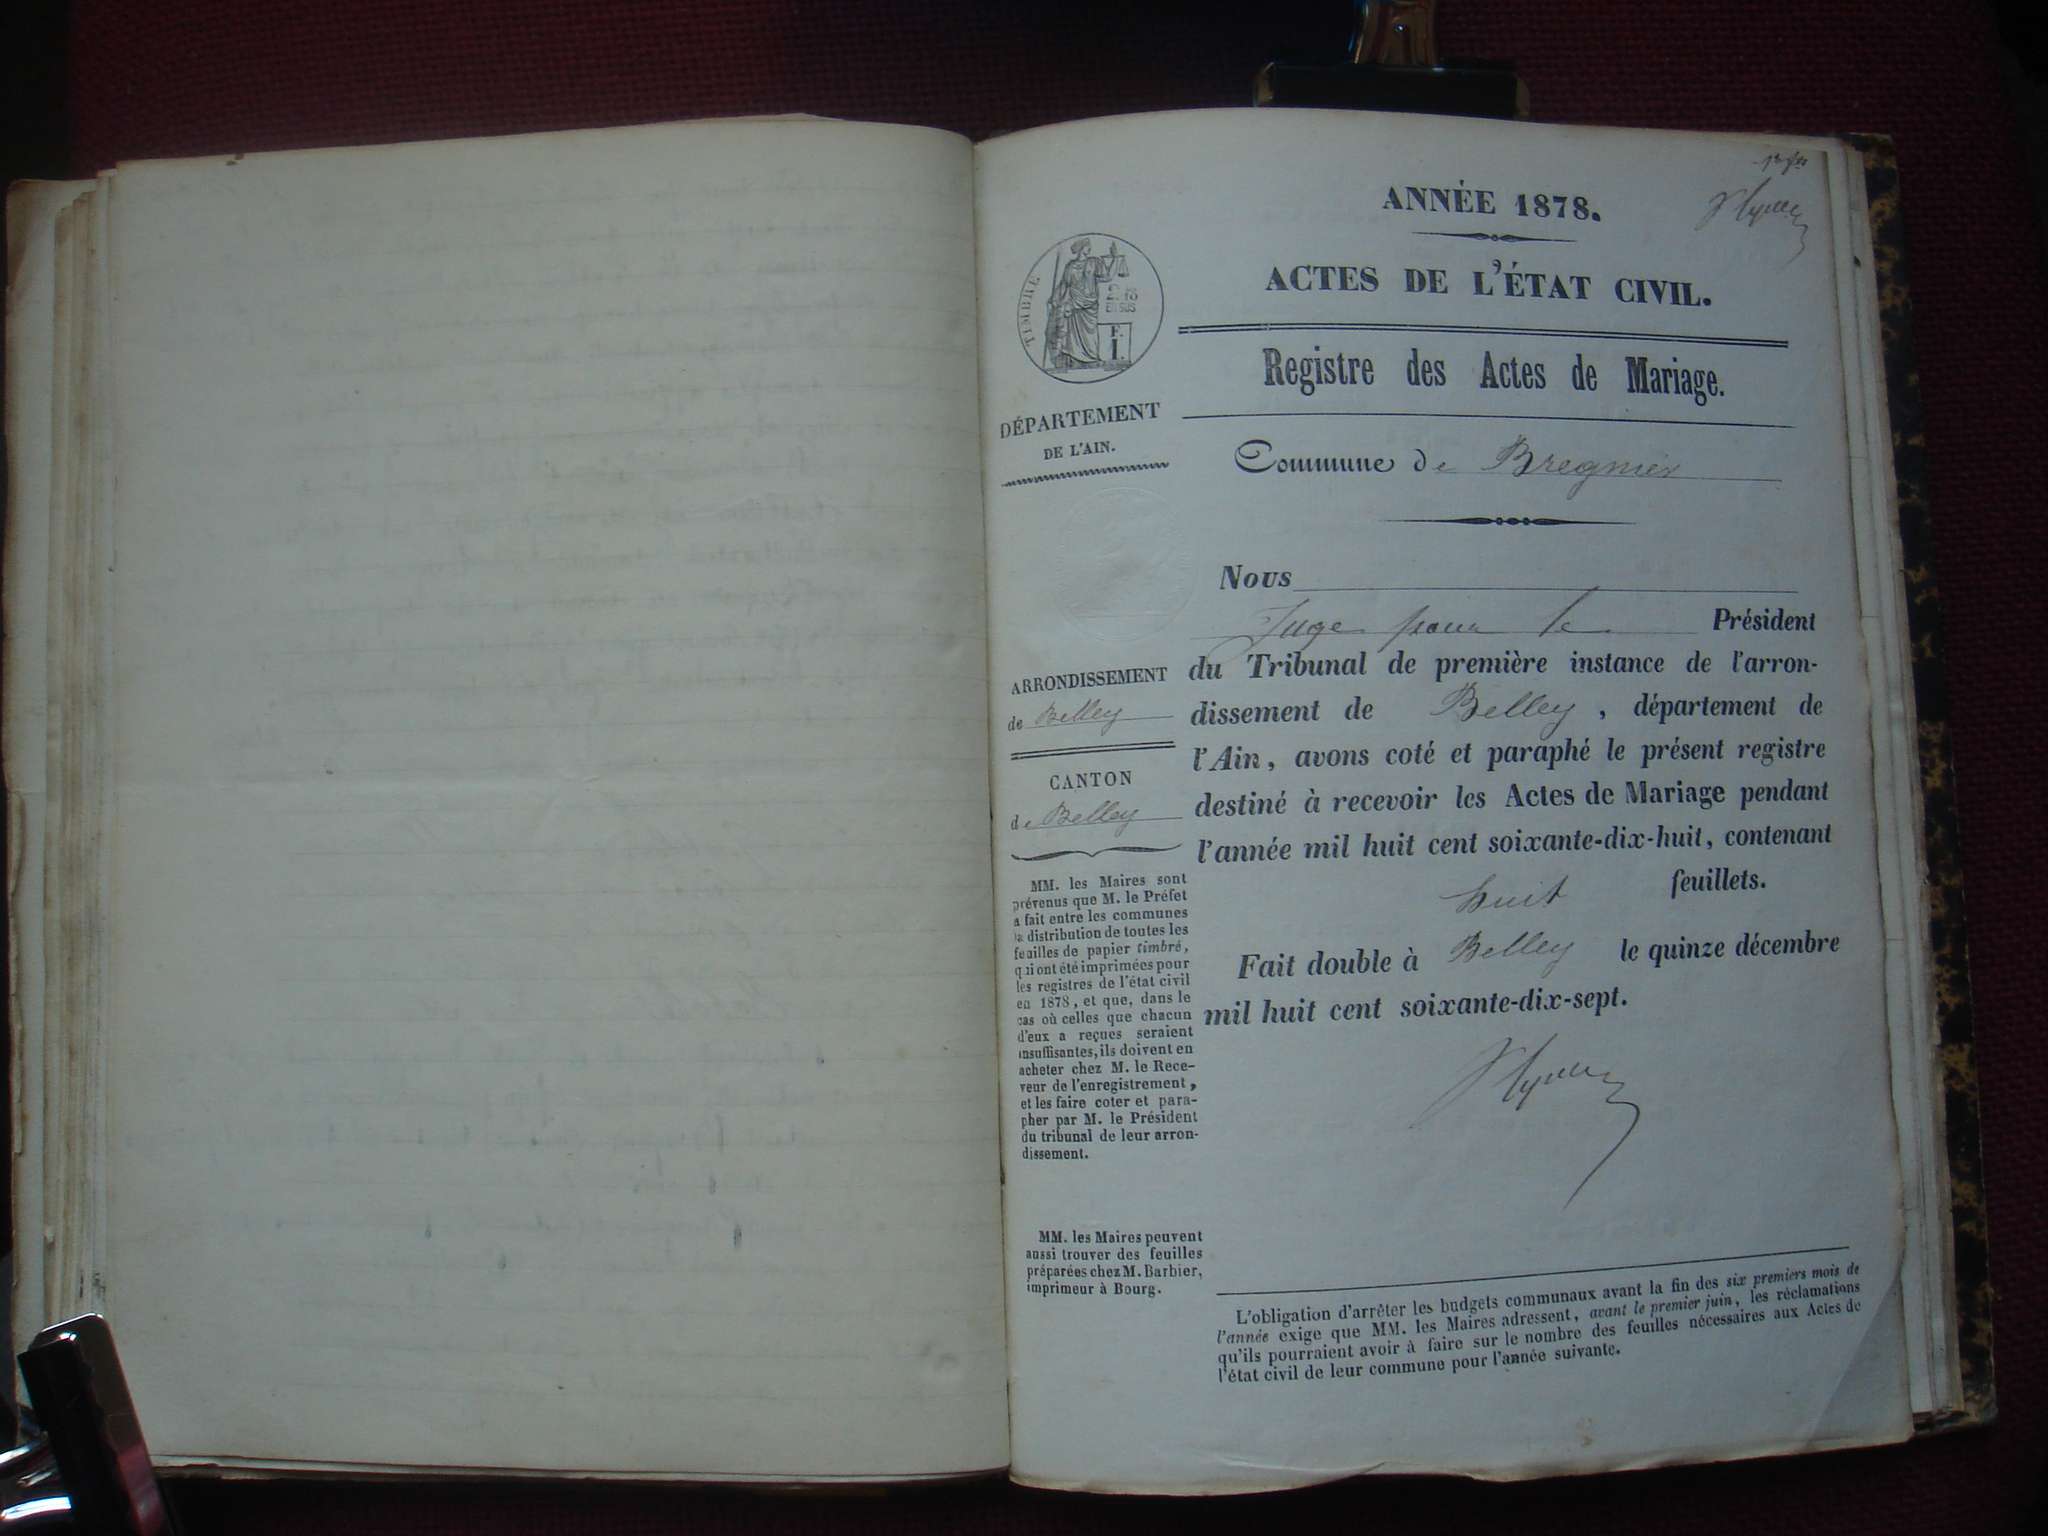 ANNÉE 1878.
ACTES DE L'ÉTAT CIVIL.
Registre des Actes de Mariage.
TIMBRE
EN SUS
DÉPARTEMENT
DE L'AIN.
Commune de Bregnier
Nous
Juge pour le Président
du Tribunal de première instance de l'arron-
dissement de Belley, département de
l'Ain, avons coté et paraphé le présent registre
destiné à recevoir les Actes de Mariage pendant
l'année mil huit cent soixante-dix-huit, contenant
huit feuillets.
Fait double à Belley le quinze décembre
mil huit cent soixante-dix-sept.
ARRONDISSEMENT
de Belley
CANTON
de Belley
MM. les Maires sont
prévenus que M. le Préfet
a fait entre les communes
la distribution de toutes les
feuilles de papier timbré,
qui ont été imprimées pour
les registres de l'état civil
en 1878, et que, dans le
cas où celles que chacun
d'eux a reçues seraient
insuffisantes, ils doivent en
acheter chez M. le Rece-
veur de l'enregistrement,
et les faire coter et para-
pher par M. le Président
du tribunal de leur arron-
dissement.
MM. les Maires peuvent
aussi trouver des feuilles
préparées chez M. Barbier,
imprimeur à Bourg.
L'obligation d'arrêter les budgets communaux avant la fin des six premiers mois de
l'année exige que MM. les Maires adressent, avant le premier juin, les réclamations
qu'ils pourraient avoir à faire sur le nombre des feuilles nécessaires aux Actes de
l'état civil de leur commune pour l'année suivante.